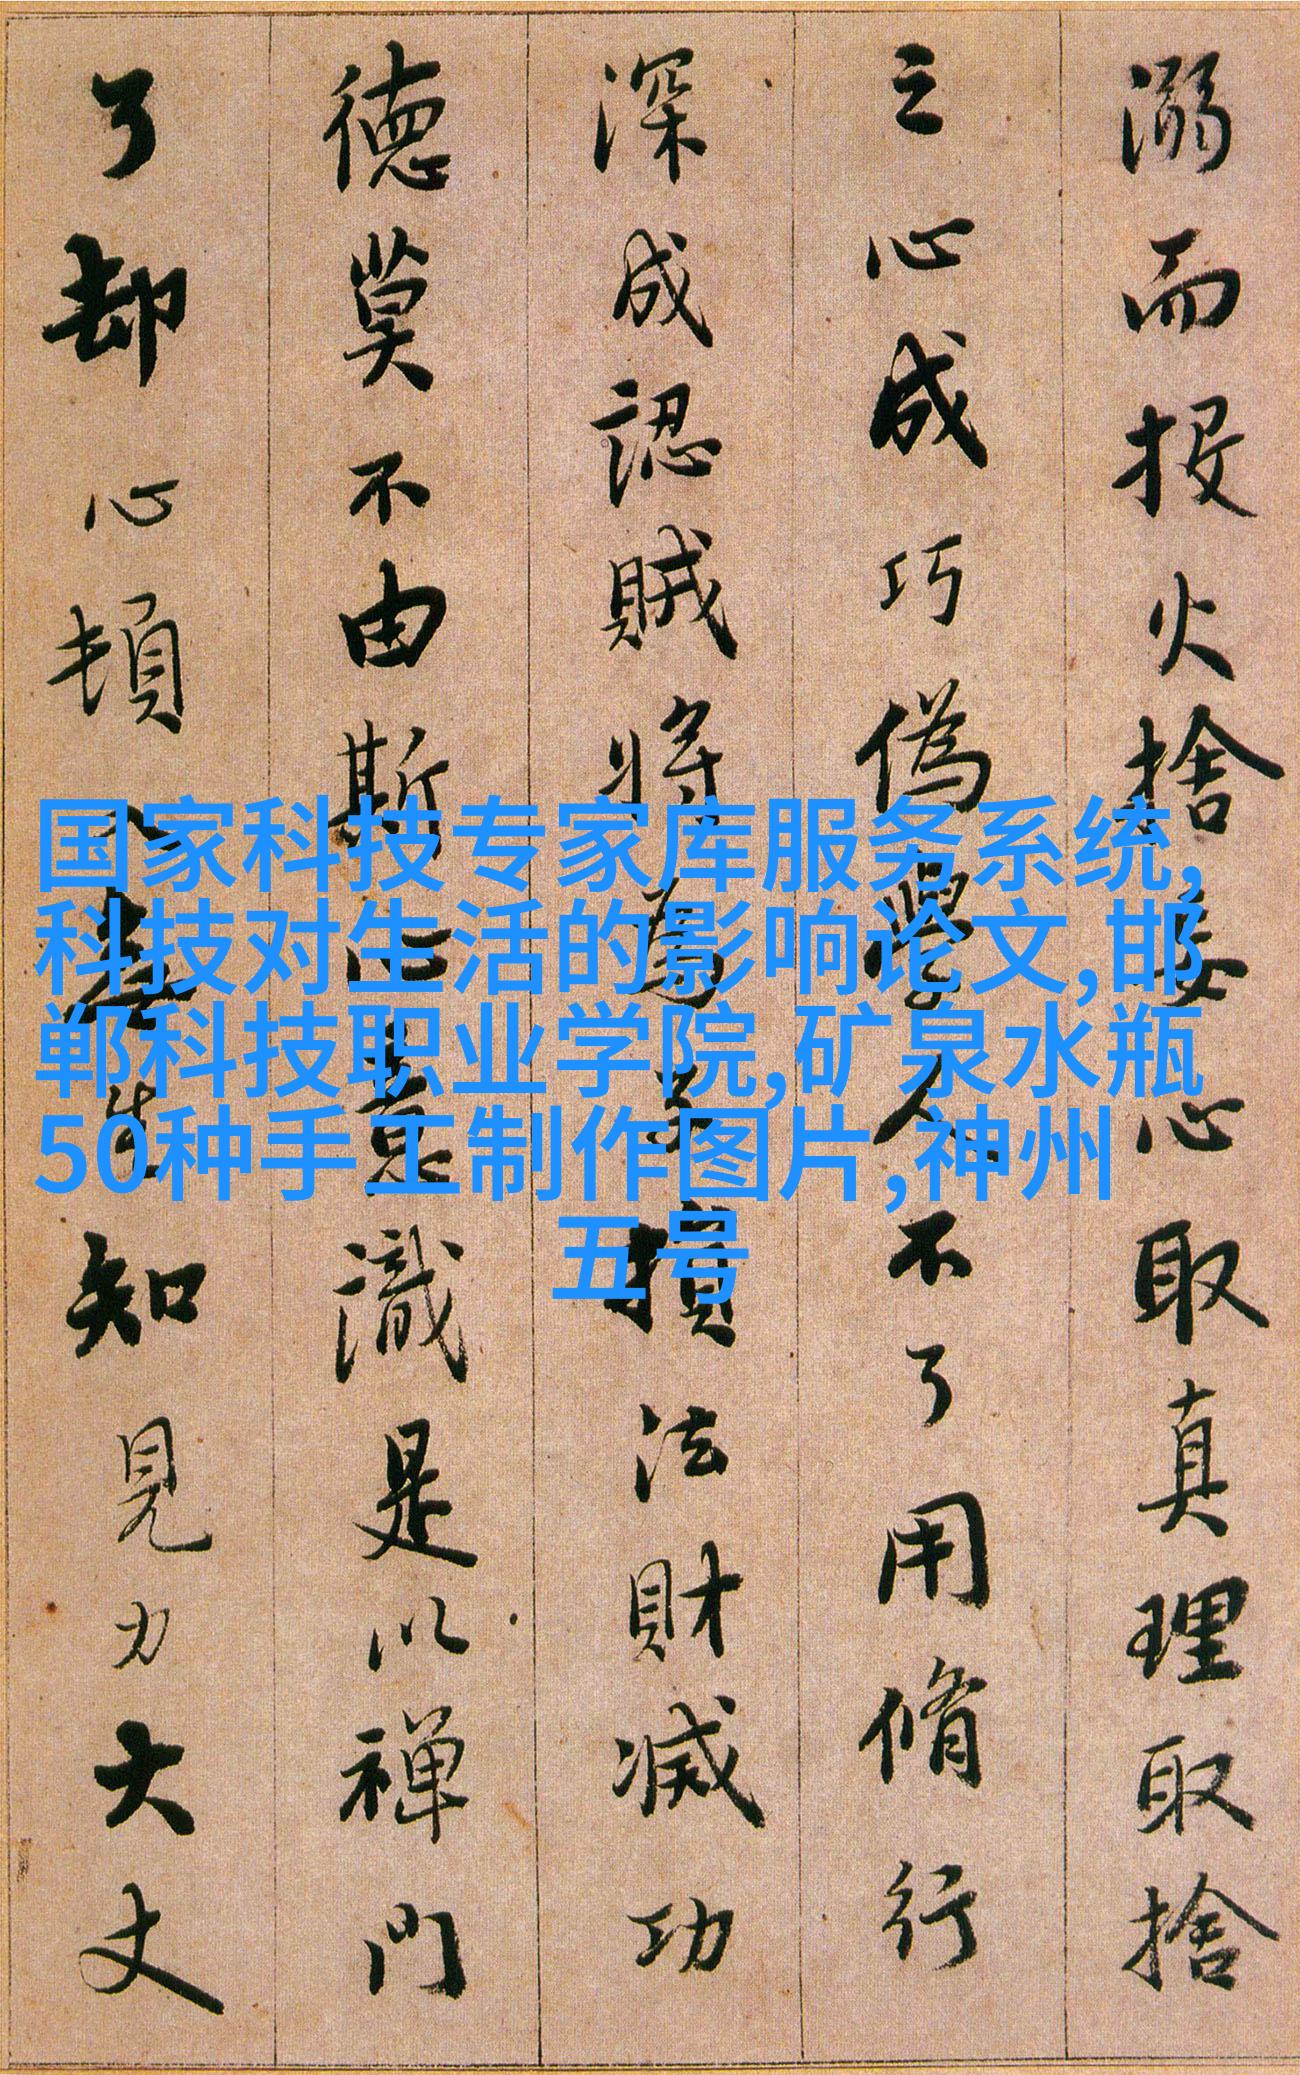 溺而投火捨妄心取真理取捨
之心成巧偽學人不了用脩行
深成認賊將為子損法財滅功
德莫不由斯心意識是以禅門
了却心頓入無生知見力大丈
国家科技专家库服务系统,
科技对生活的影响论文,邯
郸科技职业学院,矿泉水瓶
50种手工制作图片,神州
五号